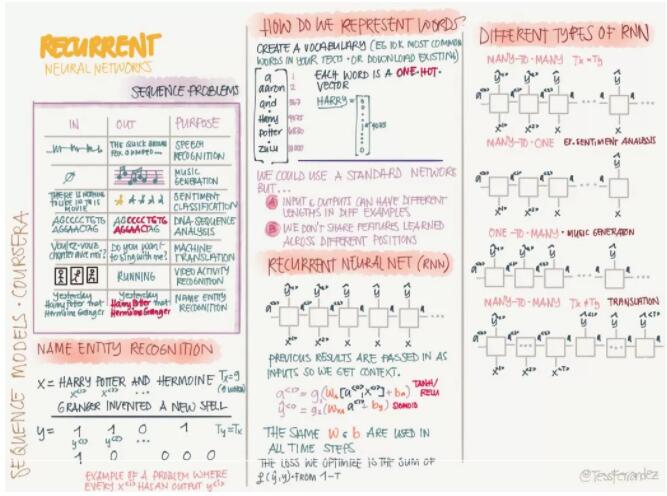 RECURRENT
NEURAL NETWORKS
SEQUENCE PROBLEMS
IN OUT PURPOSE
THE QUICK BROWN
FOX JUMPED... SPEECH
RECOGNITION
∅ MUSIC
GENERATION
THERE IS NOTHING
TO LIKE IN THIS
MOVIE SENTIMENT
CLASSIFICATION
AGCCCCTGTG
AGGAACTAG AGCCCCTGTG
AGGAACTAG DNA-SEQUENCE
ANALYSIS
Voulez-vous
chanter avec moi? Do you want
to sing with me? MACHINE
TRANSLATION
RUNNING VIDEO ACTIVITY
RECOGNITION
Yesterday
Harry Potter met
Hermione Granger Yesterday
Harry Potter met
Hermione Granger NAME ENTITY
RECOGNITION
SEQUENCE MODELS · COURSERA
NAME ENTITY RECOGNITION
X = HARRY POTTER AND HERMOINE Tx=9
x<1> x<2> x<3> (9 WORDS)
GRANGER INVENTED A NEW SPELL
y = 1 1 0 1 Ty=Tx
y<1> y<2> ...
1 0 0 0 0
EXAMPLE OF A PROBLEM WHERE
EVERY X<i> HAS AN OUTPUT y<i>
HOW DO WE REPRESENT WORDS?
CREATE A VOCABULARY (EG 10K MOST COMMON
WORDS IN YOUR TEXTS · OR DOWNLOAD EXISTING)
a 1
aaron 2
and 367
Harry 4075
Potter 6830
zulu 10000
EACH WORD IS A ONE·HOT·
VECTOR
HARRY = 4075
WE COULD USE A STANDARD NETWORK
BUT...
A INPUT & OUTPUTS CAN HAVE DIFFERENT
LENGTHS IN DIFF EXAMPLES
B WE DON'T SHARE FEATURES LEARNED
ACROSS DIFFERENT POSITIONS
RECURRENT NEURAL NET (RNN)
PREVIOUS RESULTS ARE PASSED IN AS
INPUTS SO WE GET CONTEXT.
TANH/
RELU
SIGMOID
THE SAME W & b ARE USED IN
ALL TIME STEPS
THE LOSS WE OPTIMIZE IS THE SUM OF
ℒ(ŷ,y) FROM 1-T
DIFFERENT TYPES OF RNN
MANY-TO-MANY Tx=Ty
MANY-TO-ONE EX. SENTIMENT ANALYSIS
ONE-TO-MANY · MUSIC GENERATION
MANY-TO-MANY Tx≠Ty TRANSLATION
@TessFerrandez